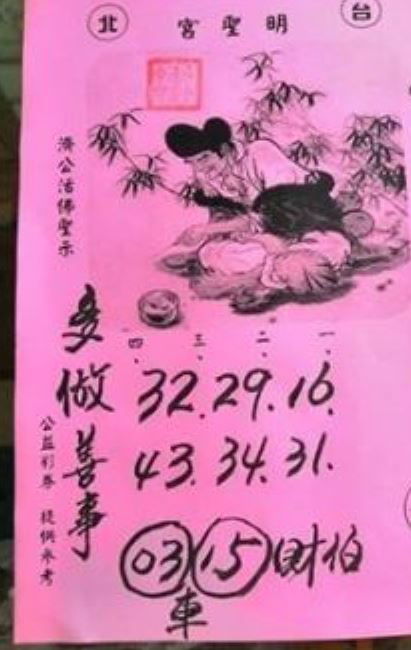 台北
明聖宮
濟公活佛聖示
一、二、三、四、
16. 29. 32.
31. 34. 43.
財伯 15 03
車
多做善事
公益彩券 提供參考